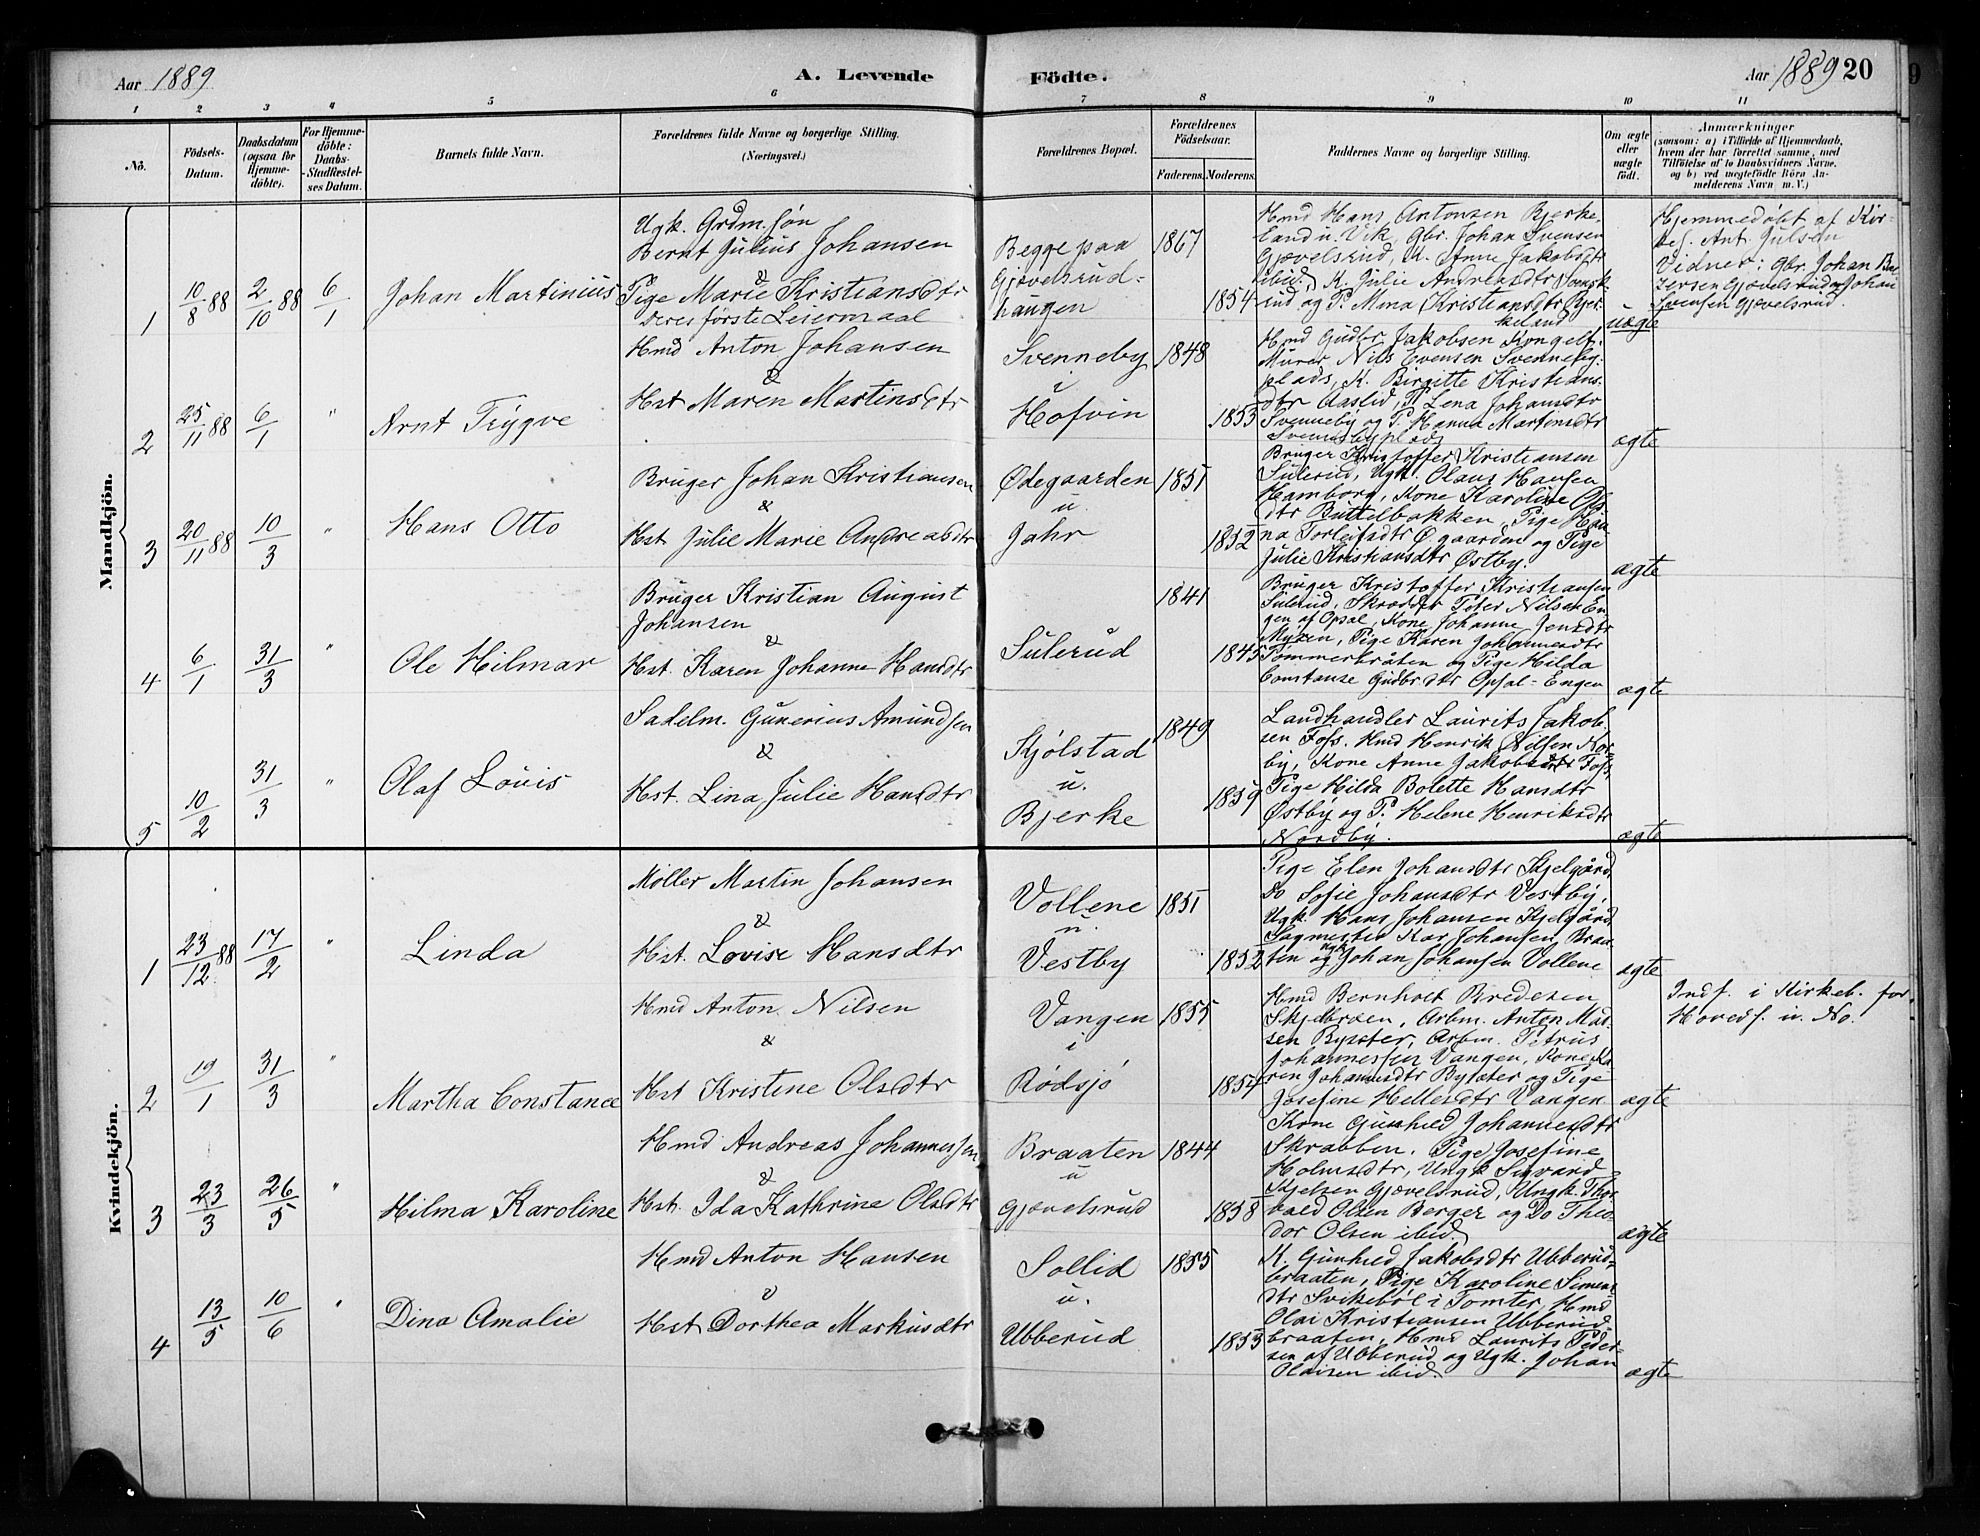 Aar 1889
A. Levende
Födte.
Aar 1889 20
1 2 3 4 5 6 7 8 9 10 11
No.
Födsels-Datum.
Daabsdatum (ogsaa for Hjemme-döbte).
For Hjemme-döbte: Daabs-Stadfestel-ses Datum.
Barnets fulde Navn.
Forældrenes fulde Navne og borgerlige Stilling.
(Næringsvei.)
Forældrenes Bopæl.
Forældrenes Födselsaar.
Faderens. Moderens.
Faddernes Navne og borgerlige Stilling.
Om ægte eller uægte födt.
Anmærkninger
(saasom: a) i Tilfælde af Hjemmedaab, hvem der har forrettet samme, med Tilföielse af to Daabsvidners Navne, og b) ved uægtefödte Börn An-melderens Navn m. V.)
Mandkjön.
1 10/8 88 2/10 88 6/1 Johan Martinius
Ugk. Grdm. søn
Bernt Julius Johansen
&
Pige Marie Kristiansdtr
Deres første Leiermaal
Begge paa
Gjævelsrud-
haugen
1867
1854
Hmd Hans Antonsen Bjerke-
land u. Vik, Gbr. Johan Svensen
Gjævelsrud, K. Anne Jakobsdtr
ibid., K. Julie Andreasdtr Svensk-
rud og P. Mina Kristiansdtr Bjer-
keland
uægte
Hjemmedøbt af Kir-
kes. Ant. Julsen
Vidner: Gbr. Johan
Gjævelsrud og Johan
Svensen Gjævelsrud
2 25/11 88 6/1 " Arnt Trygve
Hmd Anton Johansen
&
Hst Maren Martinsdtr
Svenneby
u
Hofvin
1848
1853
Hmd Gudbr. Jakobsen Kongelf.
Murer Nils Evensen Svenneby-
plads, K. Birgitte Kristians-
dtr Aaslid, P. Lena Johansdtr
Svenneby og P. Hanna Martinsdtr
Svennebyplads
ægte
3 20/11 88 10/3 " Hans Otto
Bruger Johan Kristiansen
&
Hst Julie Marie Andreasdtr
Ødegaarden
u.
Jahr
1851
1852
Bruger Kristoffer Kristiansen
Sulerud, Ugk. Olaus Hansen
Hamborg, Kone Karoline
dtr Büttelbakken, Pige Han-
na Torleifsdtr Ø.gaarden og Pige
Julie Kristiansdtr Østby.
ægte
4 6/1 31/3 " Ole Hilmar
Bruger Kristian August
Johansen
&
Hst. Karen Johanne Hansdtr
Sulerud
1841
1845
Bruger Kristoffer Kristiansen
Sulerud, Skrædder Peter Nilsen En-
gen af Opsal, Kone Johanne Jensdtr
Myren, Pige Karen Johannesdtr
Tømmerbråten og Pige Hilda
Constanse Gudbr.dtr Opsal-Engen
ægte
5 10/2 31/3 " Olaf Lovis
Sadelm. Gunerius Amundsen
&
Hst. Lina Julie Hansdtr
Skjølstad
u.
Bjerke
1849
1859
Landhandler Laurits Jakob-
sen Foss. Hmd Henrik Nilsen Nor-
by, Kone Anne Jakobsdtr Foss,
Pige Hilda Bolette Hansdtr
Østby og P. Helene Henriksdtr
Nordby.
ægte
Kvindekjön.
1 23/12 88 17/2 " Linda
Møller Martin Johansen
&
Hst. Lovise Hansdtr
Vollene
u.
Vestby
1851
1852
Pige Elen Johansdtr Kjelgård
Do Sofie Johansdtr Vestby,
Ugk. Hans Johansen Kjelgård
Sagmester Kar Johansen Braa-
ten og ugk. Johan Johansen Vollene
ægte
2 19/1 31/3 " Martha Constance
Hmd Anton Nilsen
&
Hst Kristine Olsdtr
Vangen
i
Rødsjø
1855
1854
Hmd Bernholt Bredesen
Skjelbræen, Arbm. Anton Mad-
sen Bysæter, Arbm. Petrus
Johannessen Vangen, Kone Ka-
ren Johannesdtr Bysæter og Pige
Josefine Hellesdtr Vangen
ægte
Indf. i Kirkeb. for
Hoveds. u. No.
3 23/3 26/5 " Hilma Karoline
Hmd Andreas Johannessen
&
Hst. Ida Kathrine Olsdtr
Braaten
u
Gjævelsrud
1844
1858
Kone Gunhild Johannesdtr
Skrabben. Pige Josefine
Holmsdtr, Ungk Sigvard
Kjelsen Gjævelsrud, Ungk. Thor-
vald Olsen Berger og Do Theo-
dor Olsen ibid
ægte
4 13/5 10/6 " Dina Amalie
Hmd Anton Hansen
&
Hst Dorthea Markusdtr
Sollid
u.
Ubberud
1855
1853
K. Gunhild Jakobsdtr Ubberud-
braaten, Pige Karoline Simens-
dtr Svikebøl i Tomter, Hmd
Olai Kristiansen Ubberud-
braaten, Hmd Laurits Peder-
sen af Ubberud og Ugk. Johan
Olaisen ibid.
ægte